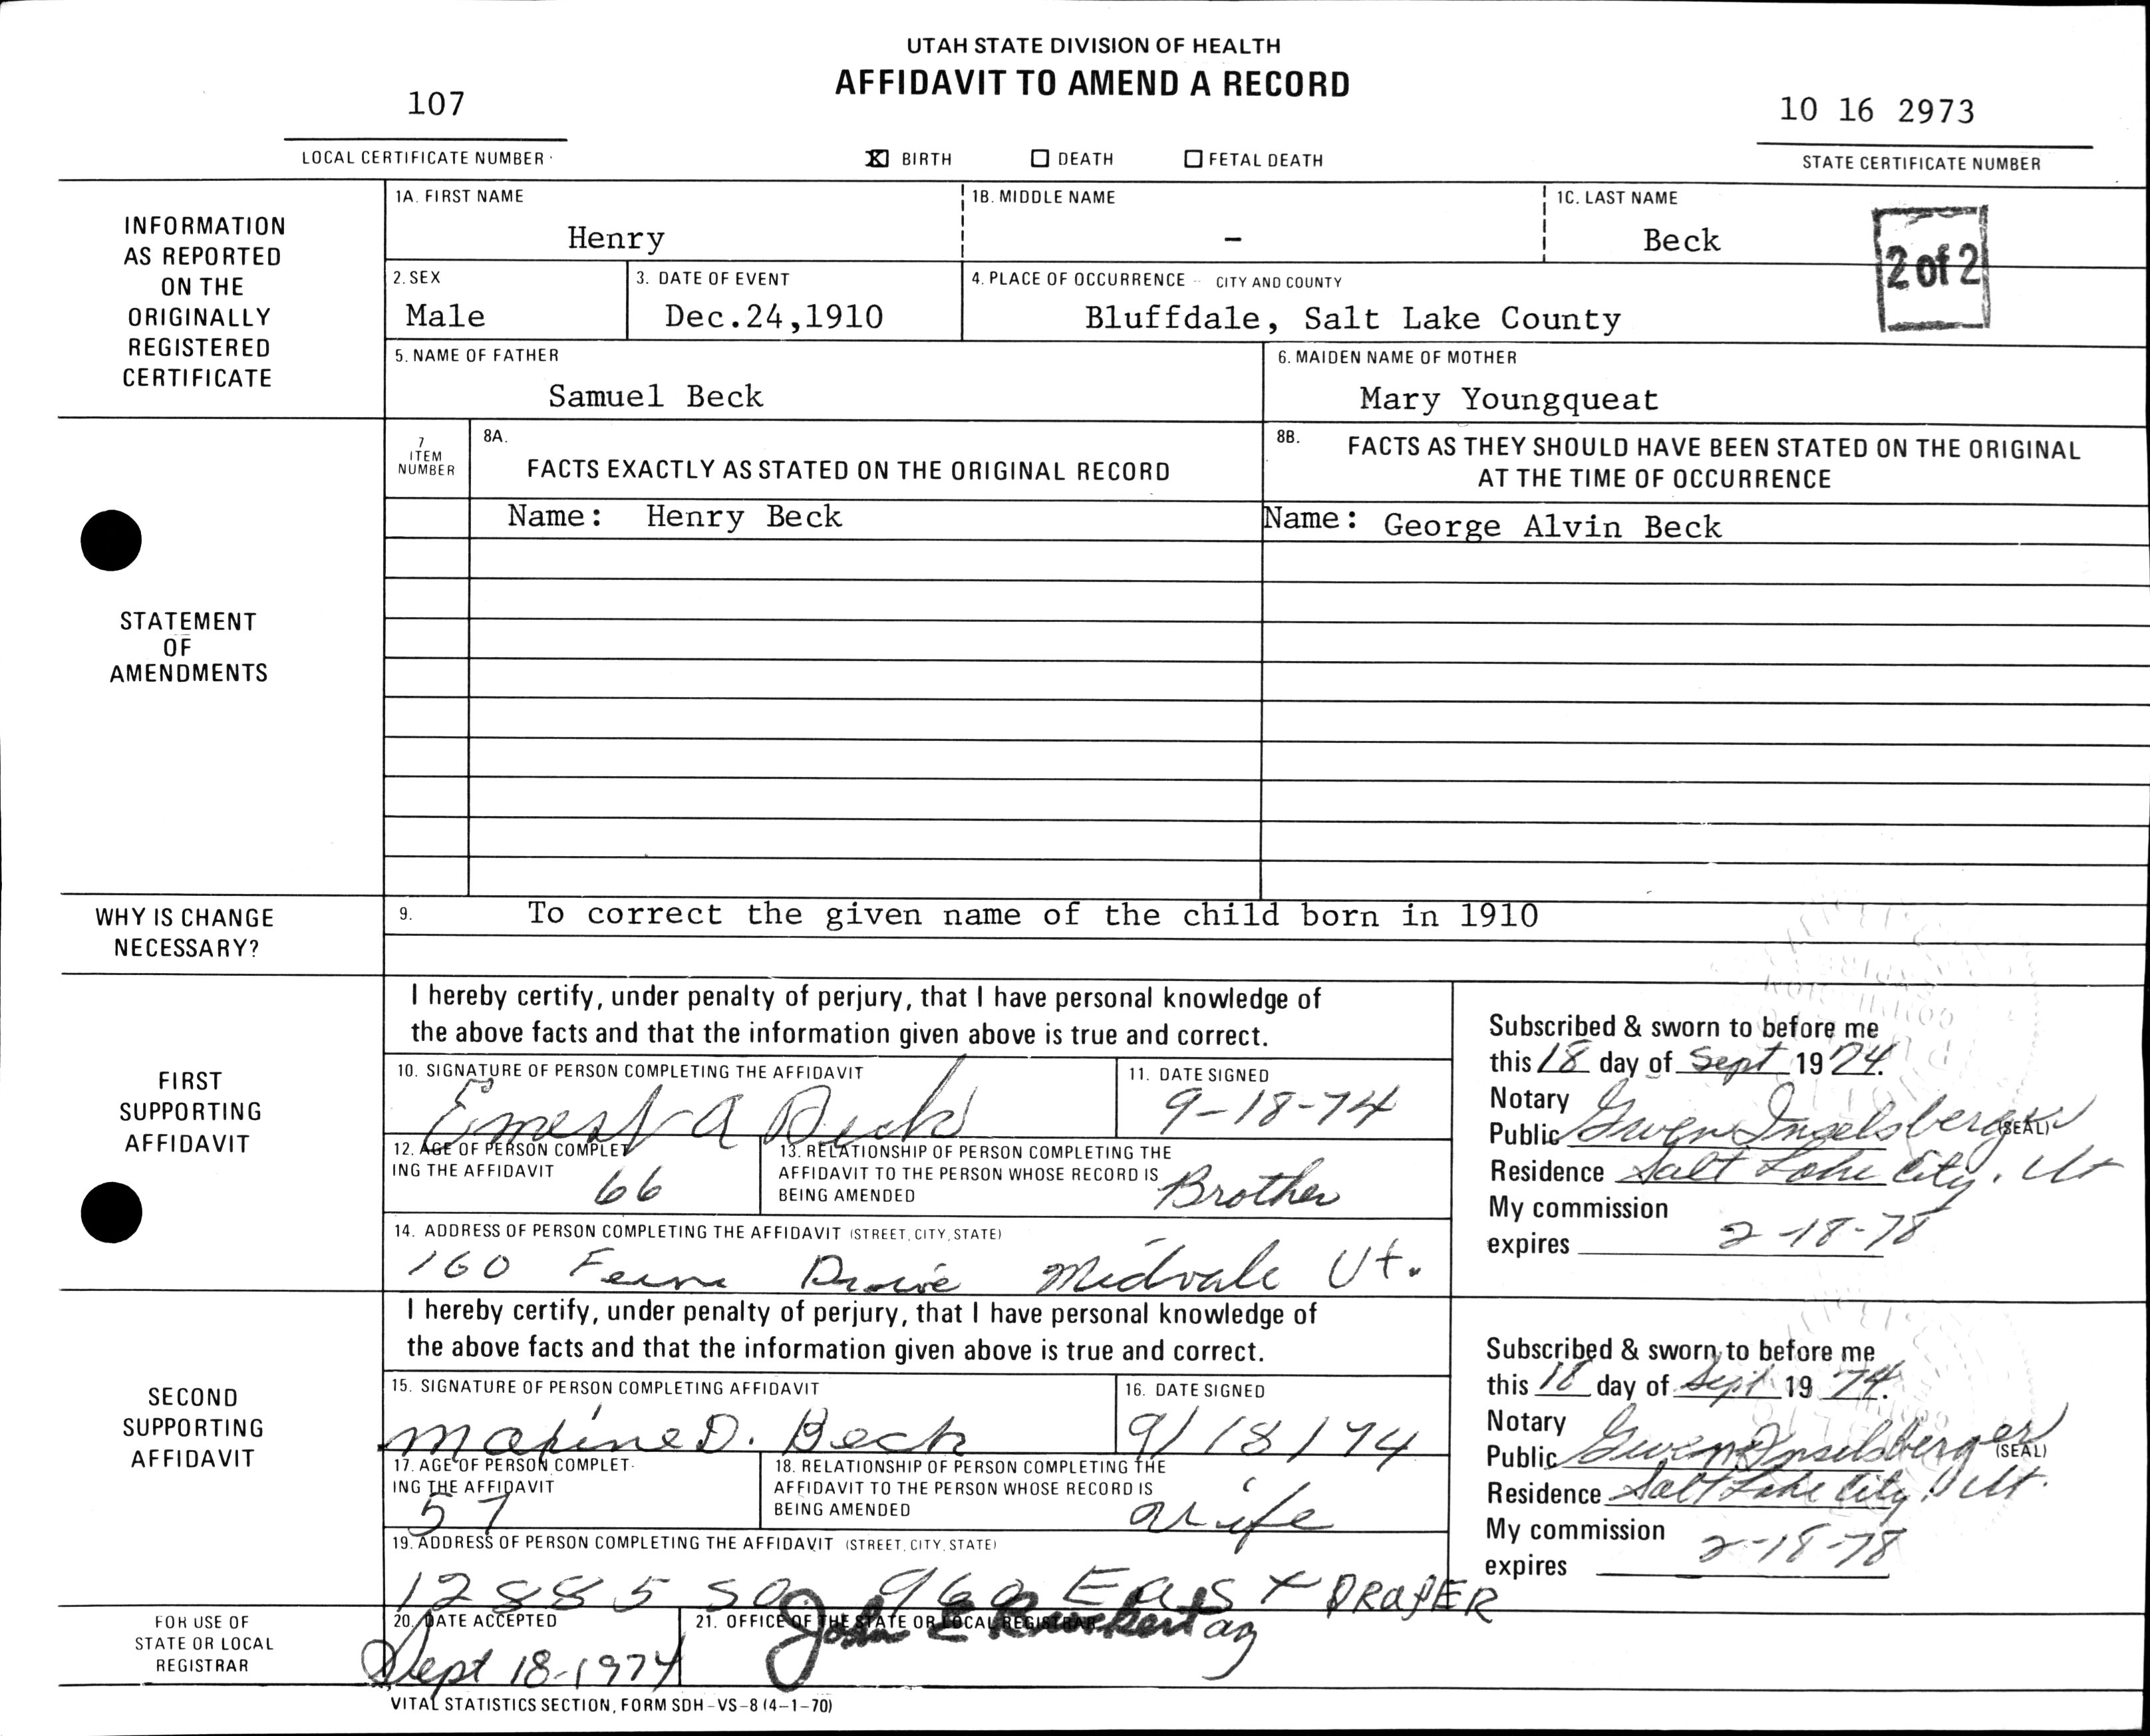 UTAH STATE DIVISION OF HEALTH
AFFIDAVIT TO AMEND A RECORD
107
LOCAL CERTIFICATE NUMBER
X BIRTH DEATH FETAL DEATH
10 16 2973
STATE CERTIFICATE NUMBER
INFORMATION
AS REPORTED
ON THE
ORIGINALLY
REGISTERED
CERTIFICATE
1A. FIRST NAME
Henry
1B. MIDDLE NAME
-
1C. LAST NAME
Beck
2 of 2
2. SEX
Male
3. DATE OF EVENT
Dec.24,1910
4. PLACE OF OCCURRENCE - CITY AND COUNTY
Bluffdale, Salt Lake County
5. NAME OF FATHER
Samuel Beck
6. MAIDEN NAME OF MOTHER
Mary Youngqueat
STATEMENT
OF
AMENDMENTS
7
ITEM
NUMBER
8A.
FACTS EXACTLY AS STATED ON THE ORIGINAL RECORD
8B. FACTS AS THEY SHOULD HAVE BEEN STATED ON THE ORIGINAL
AT THE TIME OF OCCURRENCE
Name: Henry Beck
Name: George Alvin Beck
WHY IS CHANGE
NECESSARY?
9. To correct the given name of the child born in 1910
FIRST
SUPPORTING
AFFIDAVIT
I hereby certify, under penalty of perjury, that I have personal knowledge of
the above facts and that the information given above is true and correct.
10. SIGNATURE OF PERSON COMPLETING THE AFFIDAVIT
Ernest A Beck
11. DATE SIGNED
9-18-74
12. AGE OF PERSON COMPLET
ING THE AFFIDAVIT
66
13. RELATIONSHIP OF PERSON COMPLETING THE
AFFIDAVIT TO THE PERSON WHOSE RECORD IS
BEING AMENDED
Brother
14. ADDRESS OF PERSON COMPLETING THE AFFIDAVIT (STREET, CITY, STATE)
160 Fern Drive Midvale Ut.
Subscribed & sworn to before me
this 18 day of Sept 1974.
Notary
Public Gwen Inselsberger (SEAL)
Residence Salt Lake City, Ut
My commission
expires 2-18-78
SECOND
SUPPORTING
AFFIDAVIT
I hereby certify, under penalty of perjury, that I have personal knowledge of
the above facts and that the information given above is true and correct.
15. SIGNATURE OF PERSON COMPLETING AFFIDAVIT
Maxine D. Beck
16. DATE SIGNED
9/18/74
17. AGE OF PERSON COMPLET-
ING THE AFFIDAVIT
57
18. RELATIONSHIP OF PERSON COMPLETING THE
AFFIDAVIT TO THE PERSON WHOSE RECORD IS
BEING AMENDED
Wife
19. ADDRESS OF PERSON COMPLETING THE AFFIDAVIT (STREET, CITY, STATE)
12885 So 960 East DRAPER
Subscribed & sworn to before me
this 18 day of Sept 1974.
Notary
Public Gwen Inselsberger (SEAL)
Residence Salt Lake City, Ut.
My commission
expires 2-18-78
FOR USE OF
STATE OR LOCAL
REGISTRAR
20. DATE ACCEPTED
Sept 18-1974
21. OFFICE OF THE STATE OR LOCAL REGISTRAR
John E
VITAL STATISTICS SECTION, FORM SDH-VS-8 (4-1-70)